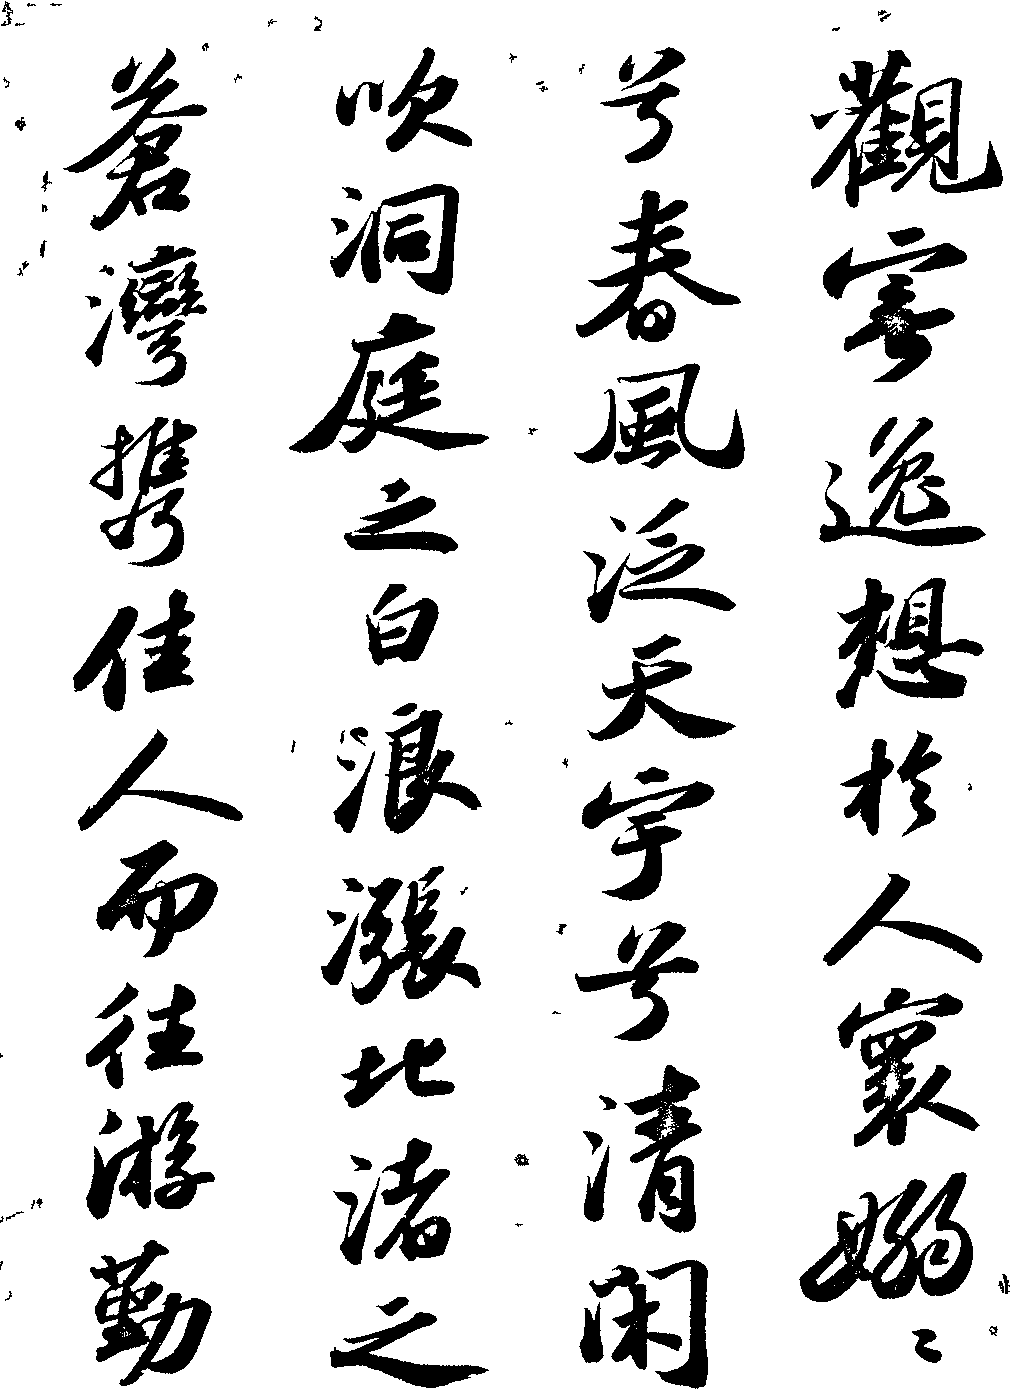 觀寄逸想於人寰嫋〻
兮春風泛天宇兮清閑
吹洞庭之白浪漲北渚之
蒼灣携佳人而往游勤